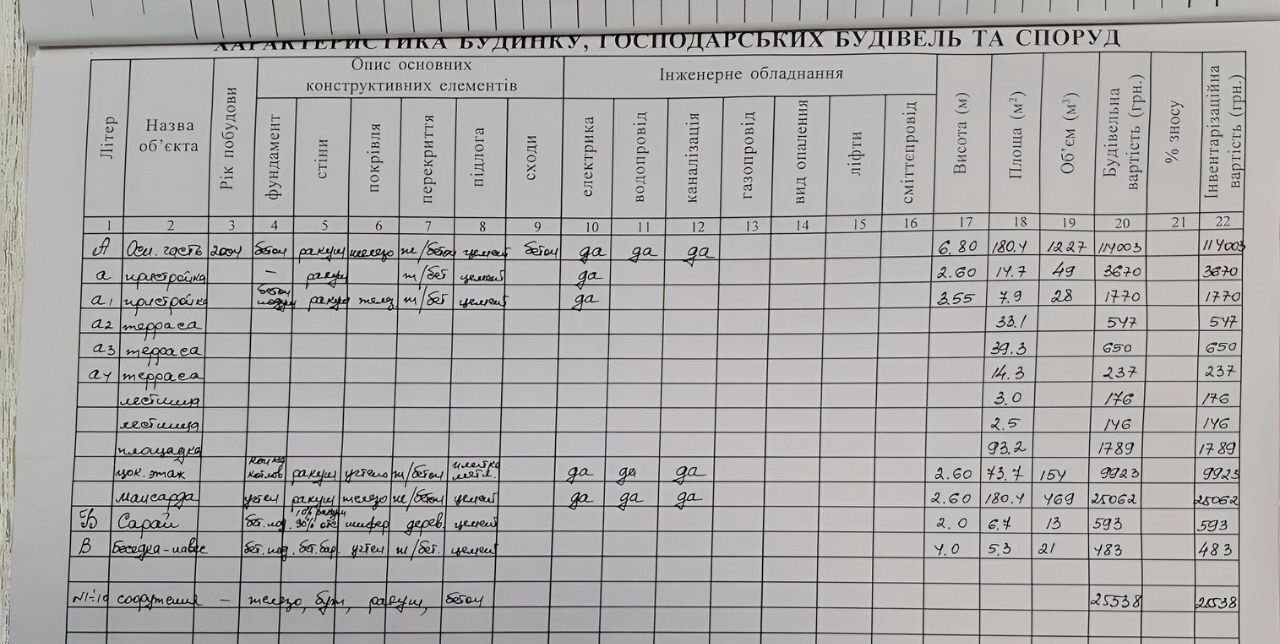 ХАРАКТЕРИСТИКА БУДИНКУ, ГОСПОДАРСЬКИХ БУДІВЕЛЬ ТА СПОРУД
Літер Назва об'єкта Рік побудови Опис основних конструктивних елементів Інженерне обладнання Висота (м) Площа (м²) Об'єм (м³) Будівельна вартість (грн.) % зносу Інвентарізаційна вартість (грн.)
фундамент стіни покрівля перекриття підлога сходи електрика водопровід каналізація газопровід вид опалення ліфти сміттєпровід
1 2 3 4 5 6 7 8 9 10 11 12 13 14 15 16 17 18 19 20 21 22
А Осн. часть 2004 бетон ракуш железо ж/бетон цемент бетон да да да 6.80 180.4 1227 114003 114003
а пристройка – ракуш ж/бет цемент да 2.60 14.7 49 3670 3670
а1 пристройка бетон ракуш желез ж/бет цемент да 3.55 7.9 28 1770 1770
а2 терраса 33.1 547 547
а3 терраса 39.3 650 650
а4 терраса 14.3 237 237
лестница 3.0 176 176
лестница 2.5 146 146
площадка 93.2 1789 1789
цок. этаж ракуш ж/бетон плитка да да да 2.60 73.7 154 9923 9923
мансарда ракуш железо ж/бетон цемент да да да 2.60 180.4 469 25062 25062
Б Сарай шифер дерев. цемент 2.0 6.7 13 593 593
В беседка-навес ж/бет. цемент 4.0 5.3 21 483 483
N1-10 сооружения – железо, бут, ракуш, бетон 25538 25538